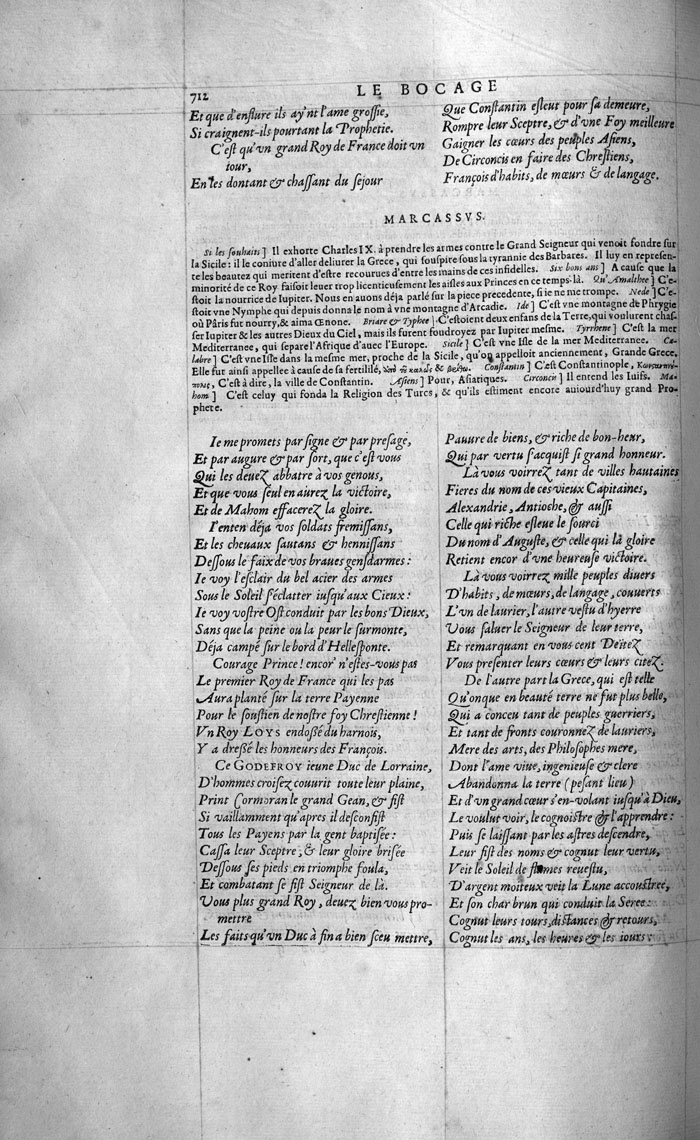 712
LE BOCAGE
Et que d'enflure ils ay'nt l'ame grossie,
Si craignent-ils pourtant la Prophetie.
C'est qu'vn grand Roy de France doit vn
iour,
En les dontant & chassant du sejour
Que Constantin esleut pour sa demeure,
Rompre leur Sceptre, & d'vne Foy meilleure
Gaigner les cœurs des peuples Asiens,
De Circoncis en faire des Chrestiens,
François d'habits, de mœurs & de langage.
MARCASSVS.
Si les souhaits ] Il exhorte Charles IX. à prendre les armes contre le Grand Seigneur qui venoit fondre sur
la Sicile: il le coniure d'aller deliurer la Grece, qui souspire sous la tyrannie des Barbares. Il luy en represen-
te les beautez qui meritent d'estre recourues d'entre les mains de ces infidelles. Six bons ans ] A cause que la
minorité de ce Roy faisoit leuer trop licentieusement les aisles aux Princes en ce temps-là. Qu'Amalthee ] C'e-
stoit la nourrice de Iupiter. Nous en auons déja parlé sur la piece precedente, si ie ne me trompe. Nede ] C'e-
stoit vne Nymphe qui depuis donna le nom à vne montagne d'Arcadie. Ide ] C'est vne montagne de Phrygie
où Pâris fut nourry, & aima Œnone. Briare & Typhee ] C'estoient deux enfans de la Terre, qui voulurent chas-
ser Iupiter & les autres Dieux du Ciel, mais ils furent foudroyez par Iupiter mesme. Tyrrhene ] C'est la mer
Mediterranee, qui separe l'Afrique d'auec l'Europe. Sicile ] C'est vne Isle de la mer Mediterranee. Ca-
labre ] C'est vne Isle dans la mesme mer, proche de la Sicile, qu'on appelloit anciennement, Grande Grece.
Elle fut ainsi appellee à cause de sa fertilité, Constantin ] C'est Constantinople,
C'est à dire, la ville de Constantin. Asiens ] Pour, Asiatiques. Circoncis ] Il entend les Iuifs. Ma-
hom ] C'est celuy qui fonda la Religion des Turcs, & qu'ils estiment encore auiourd'huy grand Pro-
phete.
Ie me promets par signe & par presage,
Et par augure & par sort, que c'est vous
Qui les deuez abbatre à vos genous,
Et que vous seul en aurez la victoire,
Et de Mahom effacerez la gloire.
I'enten déja vos soldats fremissans,
Et les cheuaux sautans & hennissans
Dessous le faix de vos braues gensdarmes:
Ie voy l'esclair du bel acier des armes
Sous le Soleil s'éclatter iusqu'aux Cieux:
Ie voy vostre Ost conduit par les bons Dieux,
Sans que la peine ou la peur le surmonte,
Déja campé sur le bord d'Hellesponte.
Courage Prince! encor' n'estes-vous pas
Le premier Roy de France qui les pas
Aura planté sur la terre Payenne
Pour le soustien de nostre foy Chrestienne!
Vn Roy LOYS endossé du harnois,
Y a dressé les honneurs des François.
Ce GODEFROY ieune Duc de Lorraine,
D'hommes croisez couurit toute leur plaine,
Print Cormoran le grand Gean, & fist
Si vaillamment qu'apres il desconfist
Tous les Payens par la gent baptisée:
Cassa leur Sceptre, & leur gloire brisée
Dessous ses pieds en triomphe foula,
Et combatant se fist Seigneur de là.
Vous plus grand Roy, deuez bien vous pro-
mettre
Les faits qu'vn Duc à fin a bien sceu mettre,
Pauure de biens, & riche de bon-heur,
Qui par vertu s'acquist si grand honneur.
Là vous voirrez tant de villes hautaines
Fieres du nom de ces vieux Capitaines,
Alexandrie, Antioche, & aussi
Celle qui riche esleue le sourci
Du nom d'Auguste, & celle qui là gloire
Retient encor d'vne heureuse victoire.
Là vous voirrez mille peuples diuers
D'habits, de mœurs, de langage, couuerts
L'vn de laurier, l'autre vestu d'hyerre
Vous saluer le Seigneur de leur terre,
Et remarquant en vous cent Deitez
Vous presenter leurs cœurs & leurs citez.
De l'autre part la Grece, qui est telle
Qu'onque en beauté terre ne fut plus belle,
Qui a conceu tant de peuples guerriers,
Et tant de fronts couronnez de lauriers,
Mere des arts, des Philosophes mere,
Dont l'ame viue, ingenieuse & clere
Abandonna la terre (pesant lieu)
Et d'vn grand cœur s'en-volant iusqu'à Dieu,
Le voulut voir, le cognoistre & l'apprendre:
Puis se laissant par les astres descendre,
Leur fist des noms & cognut leur vertu,
Veit le Soleil de flames reuestu,
D'argent moiteux veit la Lune accoustrée,
Et son char brun qui conduit la Seree:
Cognut leurs tours, distances & retours,
Cognut les ans, les heures & les iours: